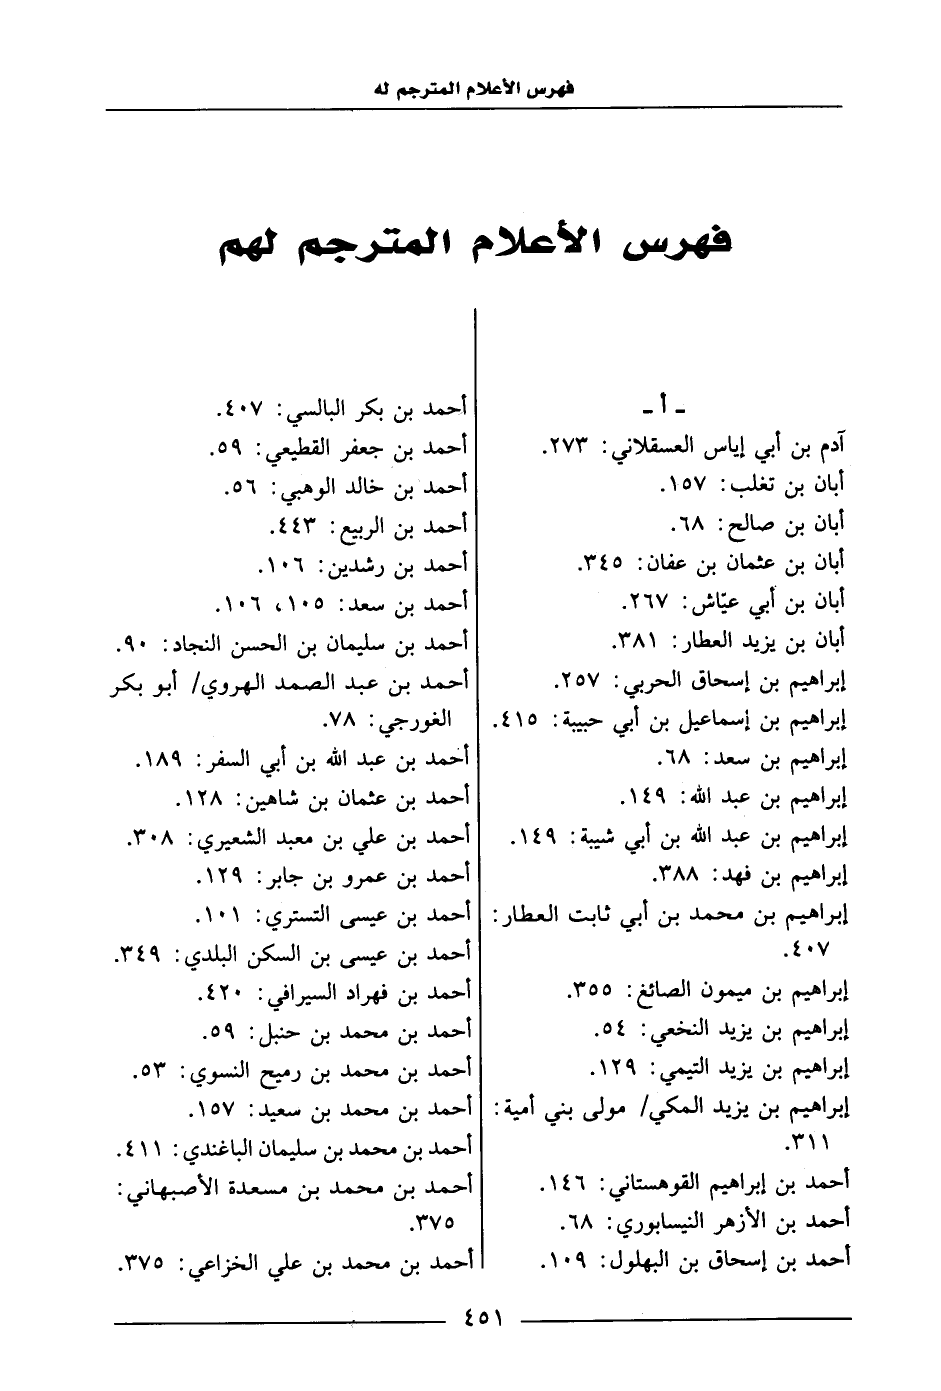 فهرس الأعلام المترجم له
فهرس الأعلام المترجم لهم
ـ أ ـ
آدم بن أبي إياس العسقلاني: ٢٧٣.
أبان بن تغلب: ١٥٧.
أبان بن صالح: ٦٨.
أبان بن عثمان بن عفان: ٣٤٥.
أبان بن أبي عيّاش: ٢٦٧.
أبان بن يزيد العطار: ٣٨١.
إبراهيم بن إسحاق الحربي: ٢٥٧.
إبراهيم بن إسماعيل بن أبي حبيبة: ٤١٥.
إبراهيم بن سعد: ٦٨.
إبراهيم بن عبد الله: ١٤٩.
إبراهيم بن عبد الله بن أبي شيبة: ١٤٩.
إبراهيم بن فهد: ٣٨٨.
إبراهيم بن محمد بن أبي ثابت العطار:
٤٠٧.
إبراهيم بن ميمون الصائغ: ٣٥٥.
إبراهيم بن يزيد النخعي: ٥٤.
إبراهيم بن يزيد التيمي: ١٢٩.
إبراهيم بن يزيد المكي/ مولى بني أمية:
٣١١.
أحمد بن إبراهيم القوهستاني: ١٤٦.
أحمد بن الأزهر النيسابوري: ٦٨.
أحمد بن إسحاق بن البهلول: ١٠٩.
أحمد بن بكر البالسي: ٤٠٧.
أحمد بن جعفر القطيعي: ٥٩.
أحمد بن خالد الوهبي: ٥٦.
أحمد بن الربيع: ٤٤٣.
أحمد بن رشدين: ١٠٦.
أحمد بن سعد: ١٠٥، ١٠٦.
أحمد بن سليمان بن الحسن النجاد: ٩٠.
أحمد بن عبد الصمد الهروي/ أبو بكر
الغورجي: ٧٨.
أحمد بن عبد الله بن أبي السفر: ١٨٩.
أحمد بن عثمان بن شاهين: ١٢٨.
أحمد بن علي بن معبد الشعيري: ٣٠٨.
أحمد بن عمرو بن جابر: ١٢٩.
أحمد بن عيسى التستري: ١٠١.
أحمد بن عيسى بن السكن البلدي: ٣٤٩.
أحمد بن فهراد السيرافي: ٤٢٠.
أحمد بن محمد بن حنبل: ٥٩.
أحمد بن محمد بن رميح النسوي: ٥٣.
أحمد بن محمد بن سعيد: ١٥٧.
أحمد بن محمد بن سليمان الباغندي: ٤١١.
أحمد بن محمد بن مسعدة الأصبهاني:
٣٧٥.
أحمد بن محمد بن علي الخزاعي: ٣٧٥.
٤٥١